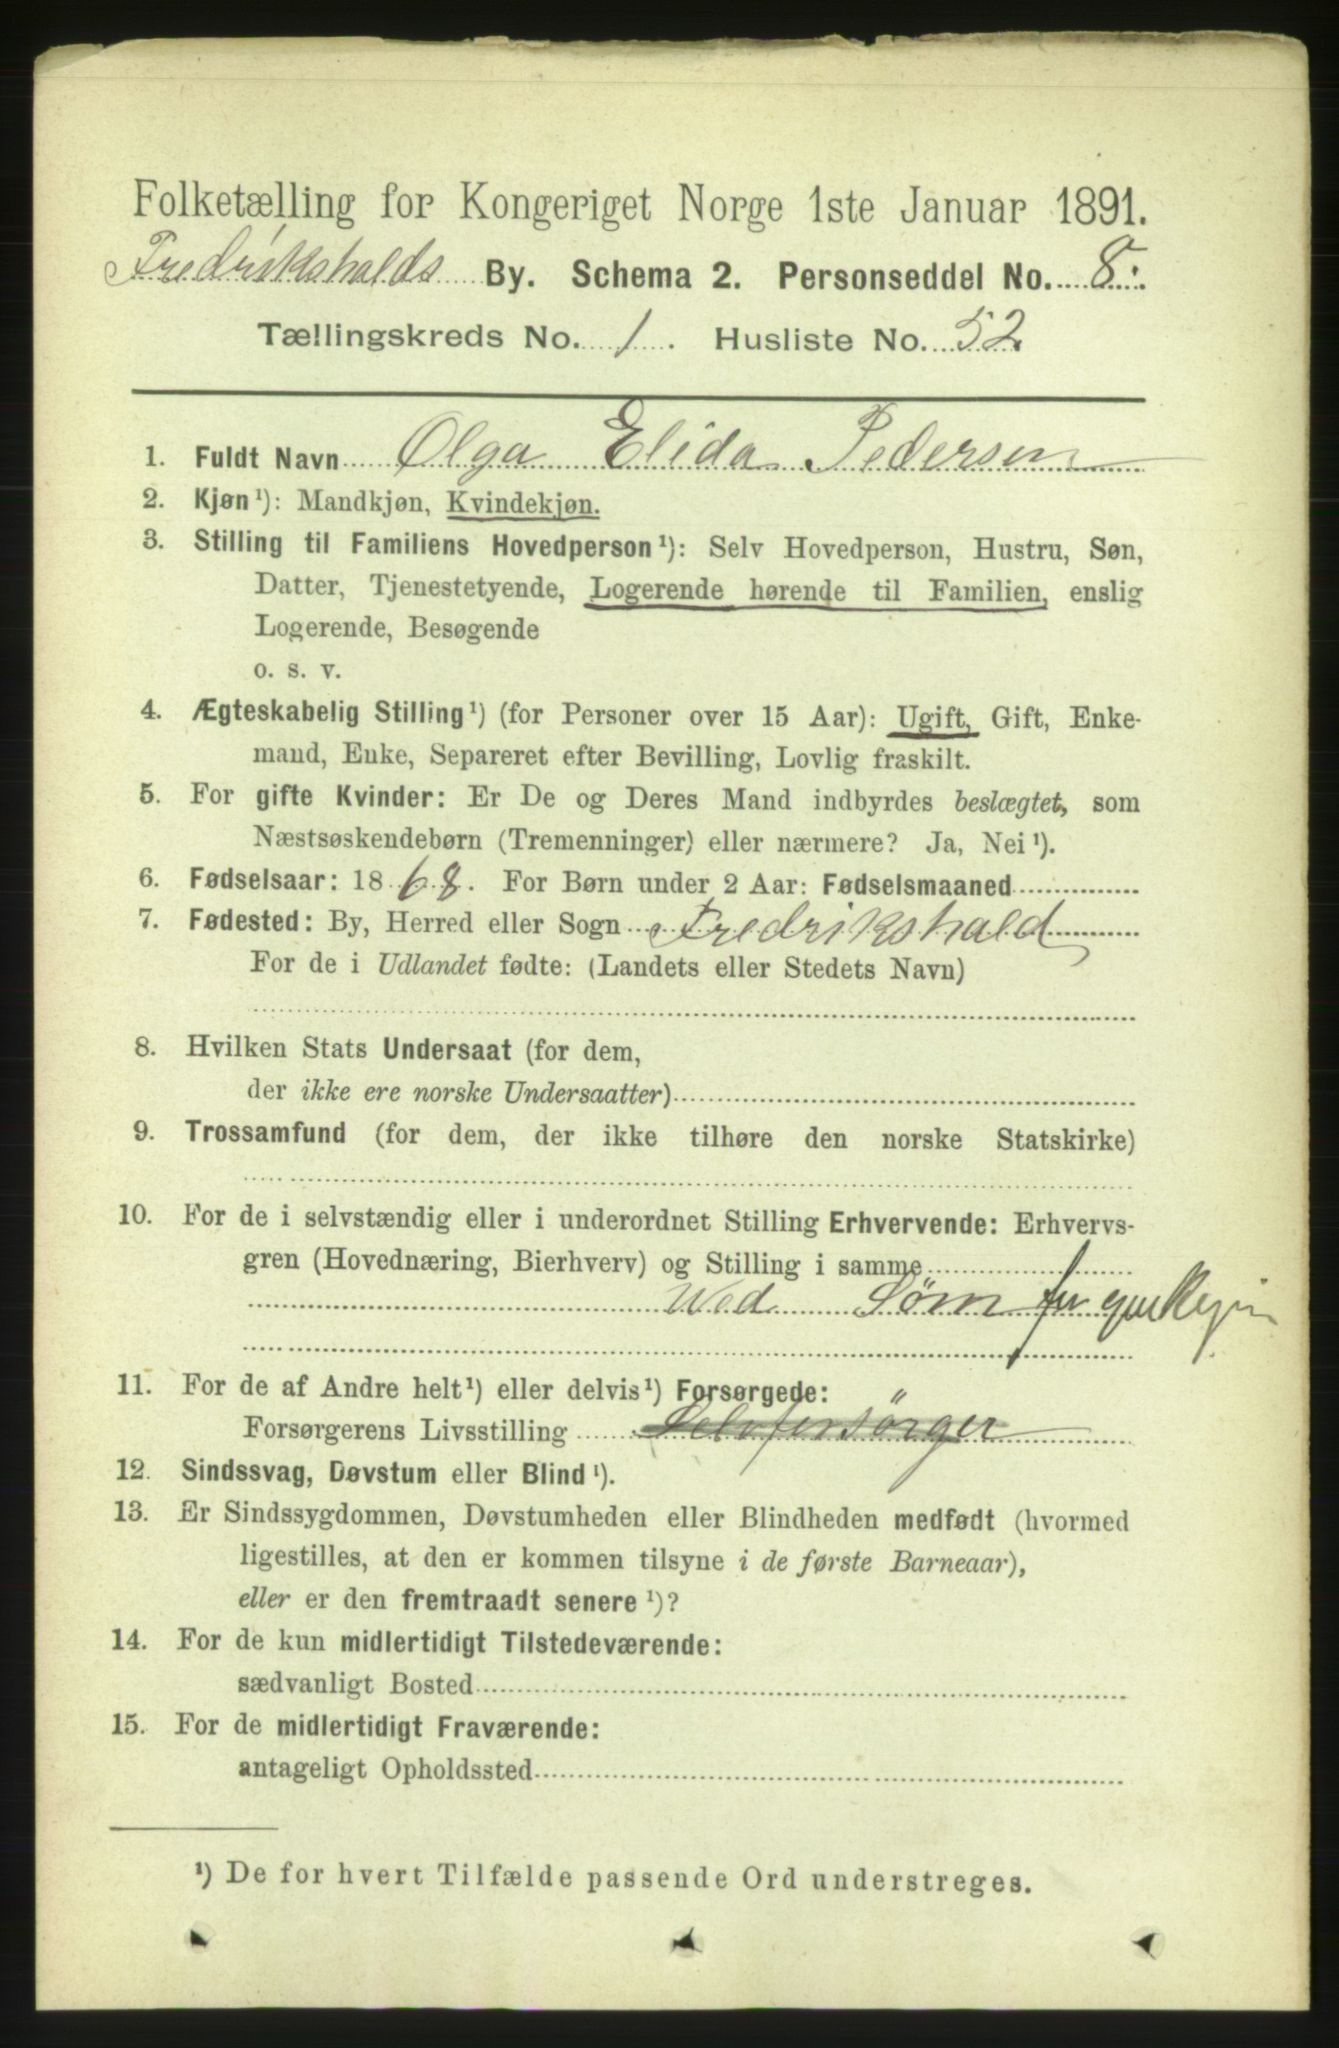 Folketælling for Kongeriget Norge 1ste Januar 1891.
Fredrikshalds By. Schema 2. Personseddel No. 8.
Tællingskreds No. 1. Husliste No. 52
1. Fuldt Navn Olga Elida Pedersen
2. Kjøn ¹): Mandkjøn, Kvindekjøn.
3. Stilling til Familiens Hovedperson ¹): Selv Hovedperson, Hustru, Søn,
Datter, Tjenestetyende, Logerende hørende til Familien, enslig
Logerende, Besøgende
o. s. v.
4. Ægteskabelig Stilling ¹) (for Personer over 15 Aar): Ugift, Gift, Enke-
mand, Enke, Separeret efter Bevilling, Lovlig fraskilt.
5. For gifte Kvinder: Er De og Deres Mand indbyrdes beslægtet, som
Næstsøskendebørn (Tremenninger) eller nærmere? Ja, Nei ¹).
6. Fødselsaar: 1868. For Børn under 2 Aar: Fødselsmaaned
7. Fødested: By, Herred eller Sogn Fredrikshald
For de i Udlandet fødte: (Landets eller Stedets Navn)
8. Hvilken Stats Undersaat (for dem,
der ikke ere norske Undersaatter)
9. Trossamfund (for dem, der ikke tilhøre den norske Statskirke)
10. For de i selvstændig eller i underordnet Stilling Erhvervende: Erhvervs-
gren (Hovednæring, Bierhverv) og Stilling i samme
Ved Søm for
11. For de af Andre helt ¹) eller delvis ¹) Forsørgede:
Forsørgerens Livsstilling Selvforsörger
12. Sindssvag, Døvstum eller Blind ¹).
13. Er Sindssygdommen, Døvstumheden eller Blindheden medfødt (hvormed
ligestilles, at den er kommen tilsyne i de første Barneaar),
eller er den fremtraadt senere ¹)?
14. For de kun midlertidigt Tilstedeværende:
sædvanligt Bosted
15. For de midlertidigt Fraværende:
antageligt Opholdssted
¹) De for hvert Tilfælde passende Ord understreges.